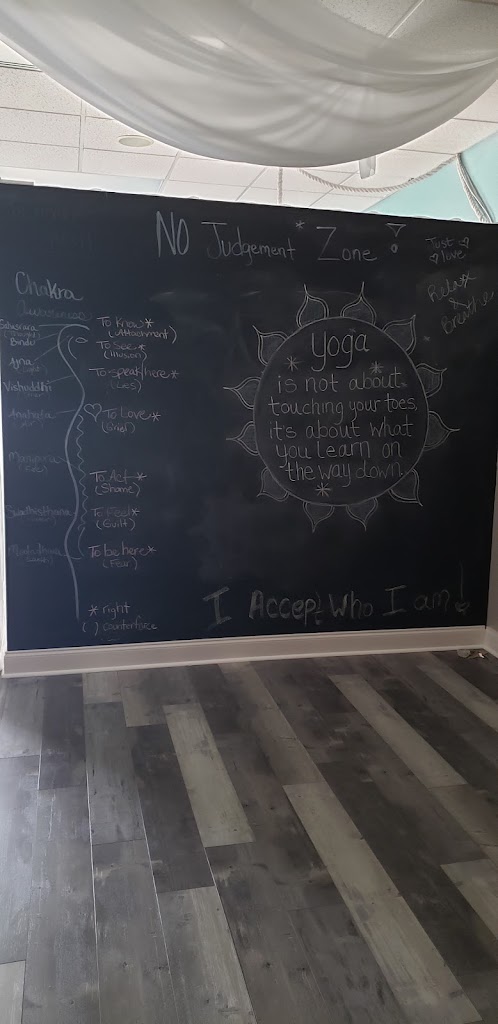 NO Judgement Zone!
Just
love
Relax
&
Breathe
Chakra
Bindu
Ajna
Vishuddhi
To Know*
(Attachment)
To See*
(Illusion)
To speak here*
(Lies)
To Love*
(Grief)
To Act*
(Shame)
To Feel*
(Guilt)
To be here*
(Fear)
* right
( ) counterforce
Yoga
is not about
touching your toes,
it's about what
you learn on
the way down.
I Accept Who I am!